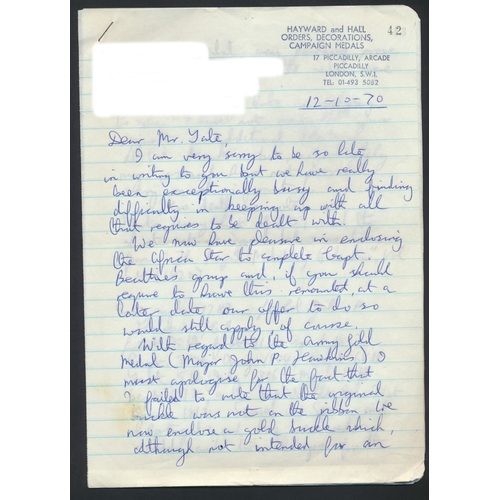 HAYWARD and HALL
ORDERS, DECORATIONS,
CAMPAIGN MEDALS
42
17 PICCADILLY, ARCADE
PICCADILLY
LONDON, S.W.1.
TEL. 01-493 5082
12-10-70
Dear Mr. Tate,
I am very sorry to be so late
in writing to you but we have really
been exceptionally busy and finding
difficulty in keeping up with all
that requires to be dealt with.
We now have pleasure in enclosing
the Africa Star to complete Capt.
Beattie's group and, if you should
require to have this remounted, at a
later date our offer to do so
would still apply, of course.
With regard to the Army Gold
Medal (Major John P. Hawkins) I
must apologise for the fact that
I failed to note that the original
buckle was not on the ribbon. We
now enclose a gold buckle which,
although not intended for an